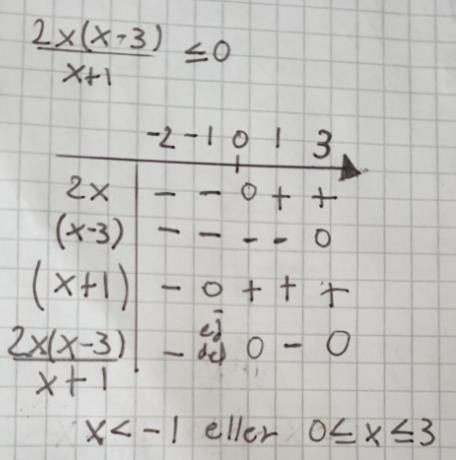 2x(x-3)/x+1 ≤0
-2 -1 0 1 3
2x - - 0 + +
(x-3) - - - - 0
(x+1) - 0 + + +
2x(x-3)/x+1 - ej def 0 - 0
x < -1 eller 0≤x≤3